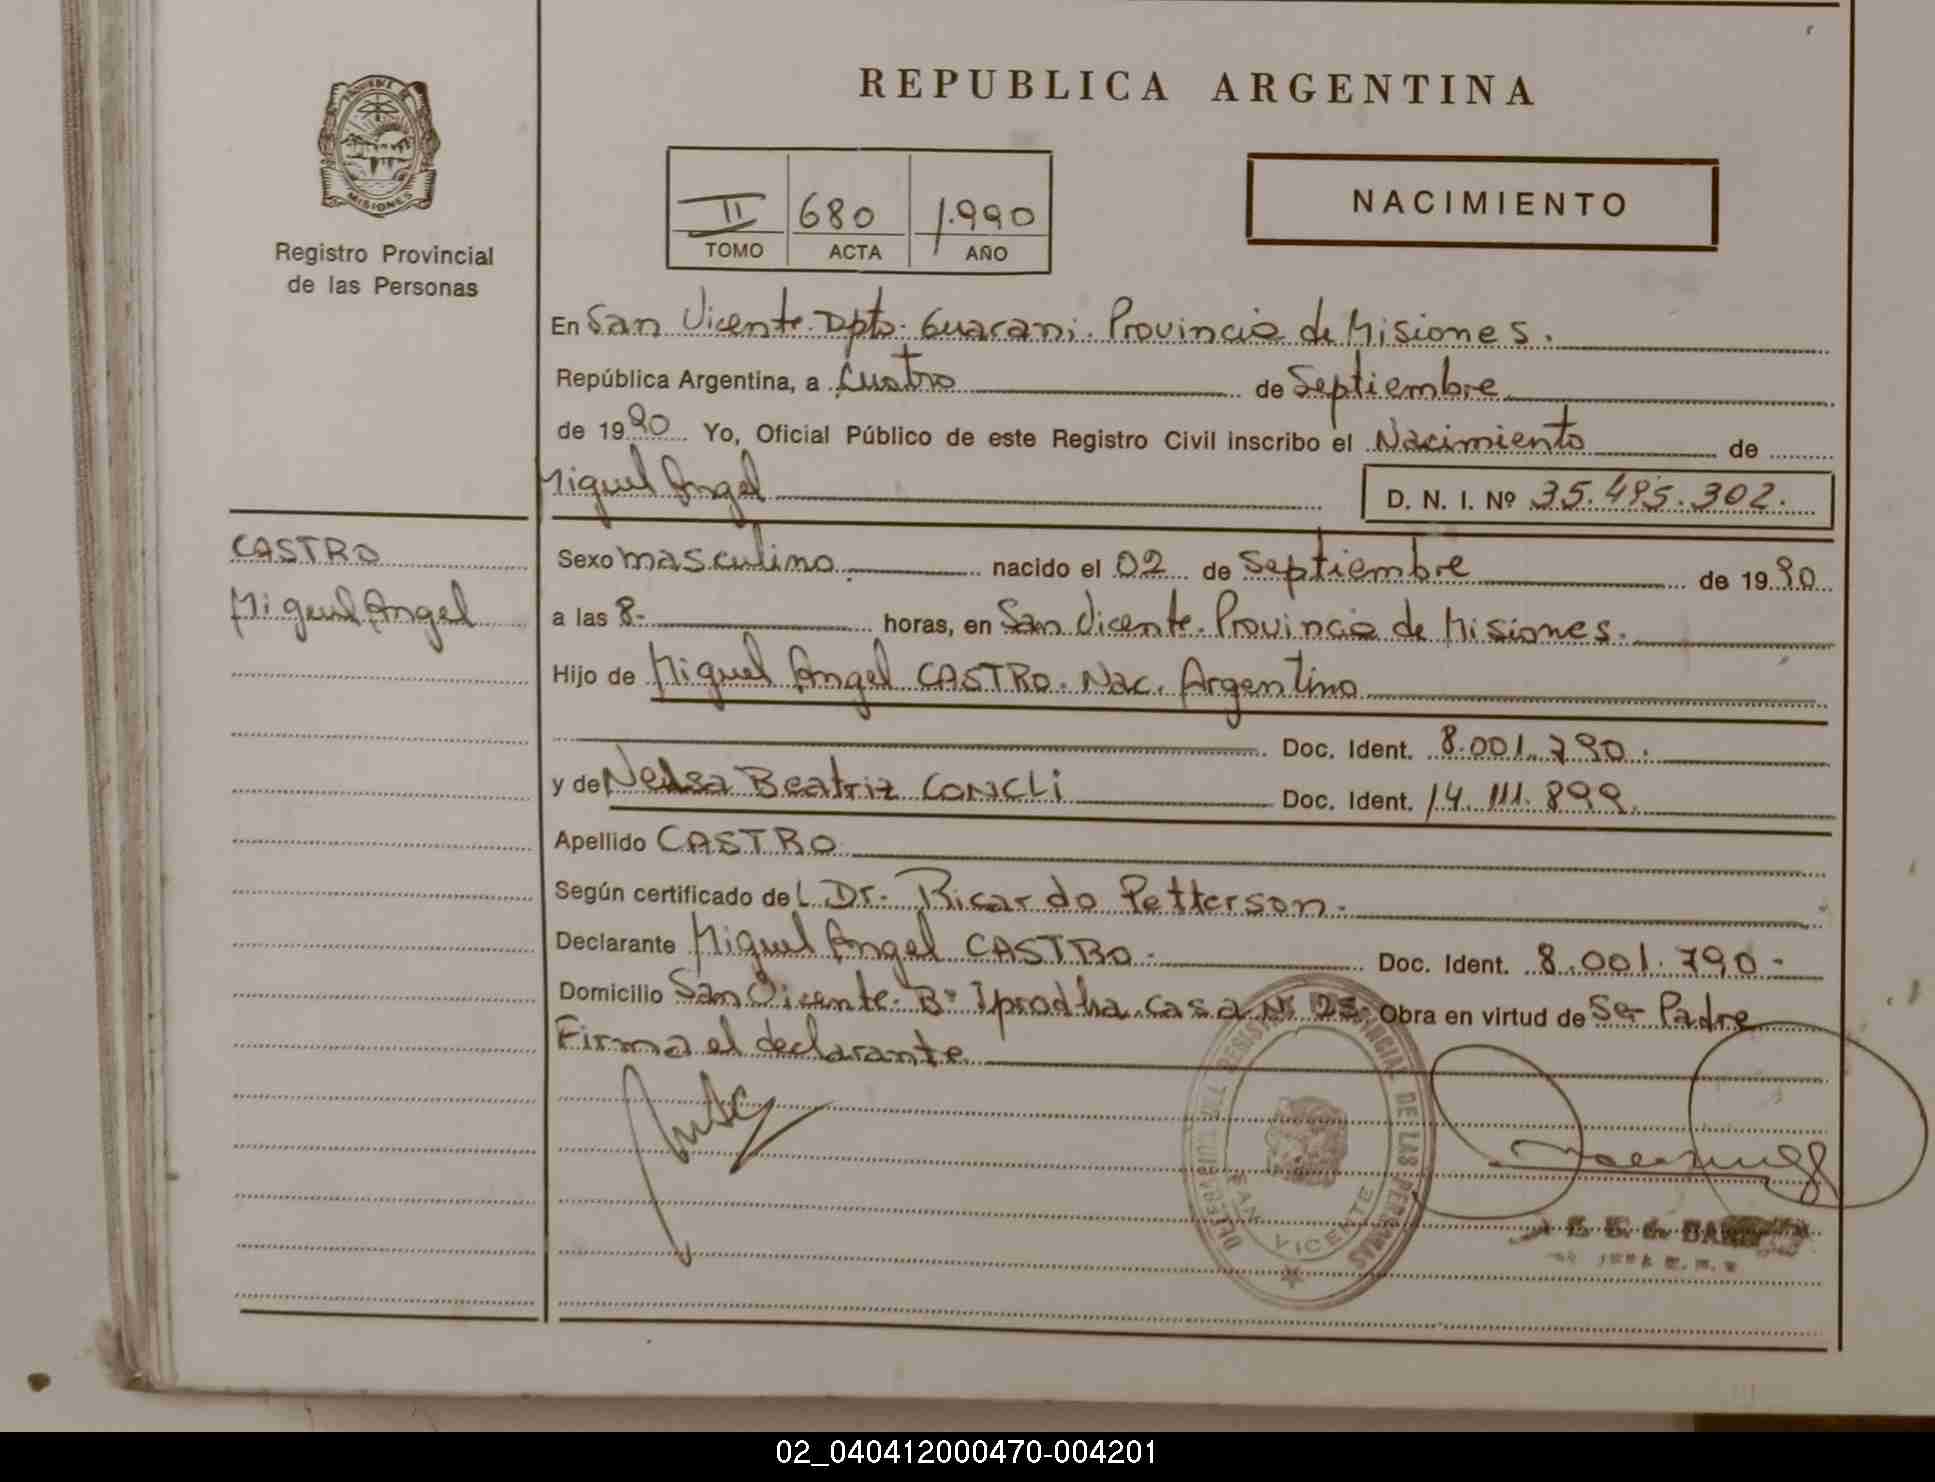 REPUBLICA ARGENTINA
MISIONES
Registro Provincial
de las Personas
II 680 1.990
TOMO ACTA AÑO
NACIMIENTO
En San Vicente. Dpto. Guarani. Provincia de Misiones.
República Argentina, a Cuatro de Septiembre
de 1990 Yo, Oficial Público de este Registro Civil inscribo el Nacimiento de
Miguel Angel D. N. I. Nº 35.495.302.
CASTRO
Migeul Angel
Sexo masculino nacido el 02 de Septiembre de 1990
a las 8- horas, en San Vicente. Provincia de Misiones.
Hijo de Miguel Angel CASTRO. Nac. Argentino
Doc. Ident. 8.001.790.
y de Beatriz Doc. Ident. 14.111.899.
Apellido CASTRO
Según certificado del Dr. Ricardo Petterson.
Declarante Miguel Angel CASTRO. Doc. Ident. 8.001.790-
Domicilio San Vicente. Bº Iprodha Casa Nº 25. Obra en virtud de Ser Padre
Firma el declarante
PROVINCIAL DE LAS PERSONAS
SAN VICENTE
02_040412000470-004201